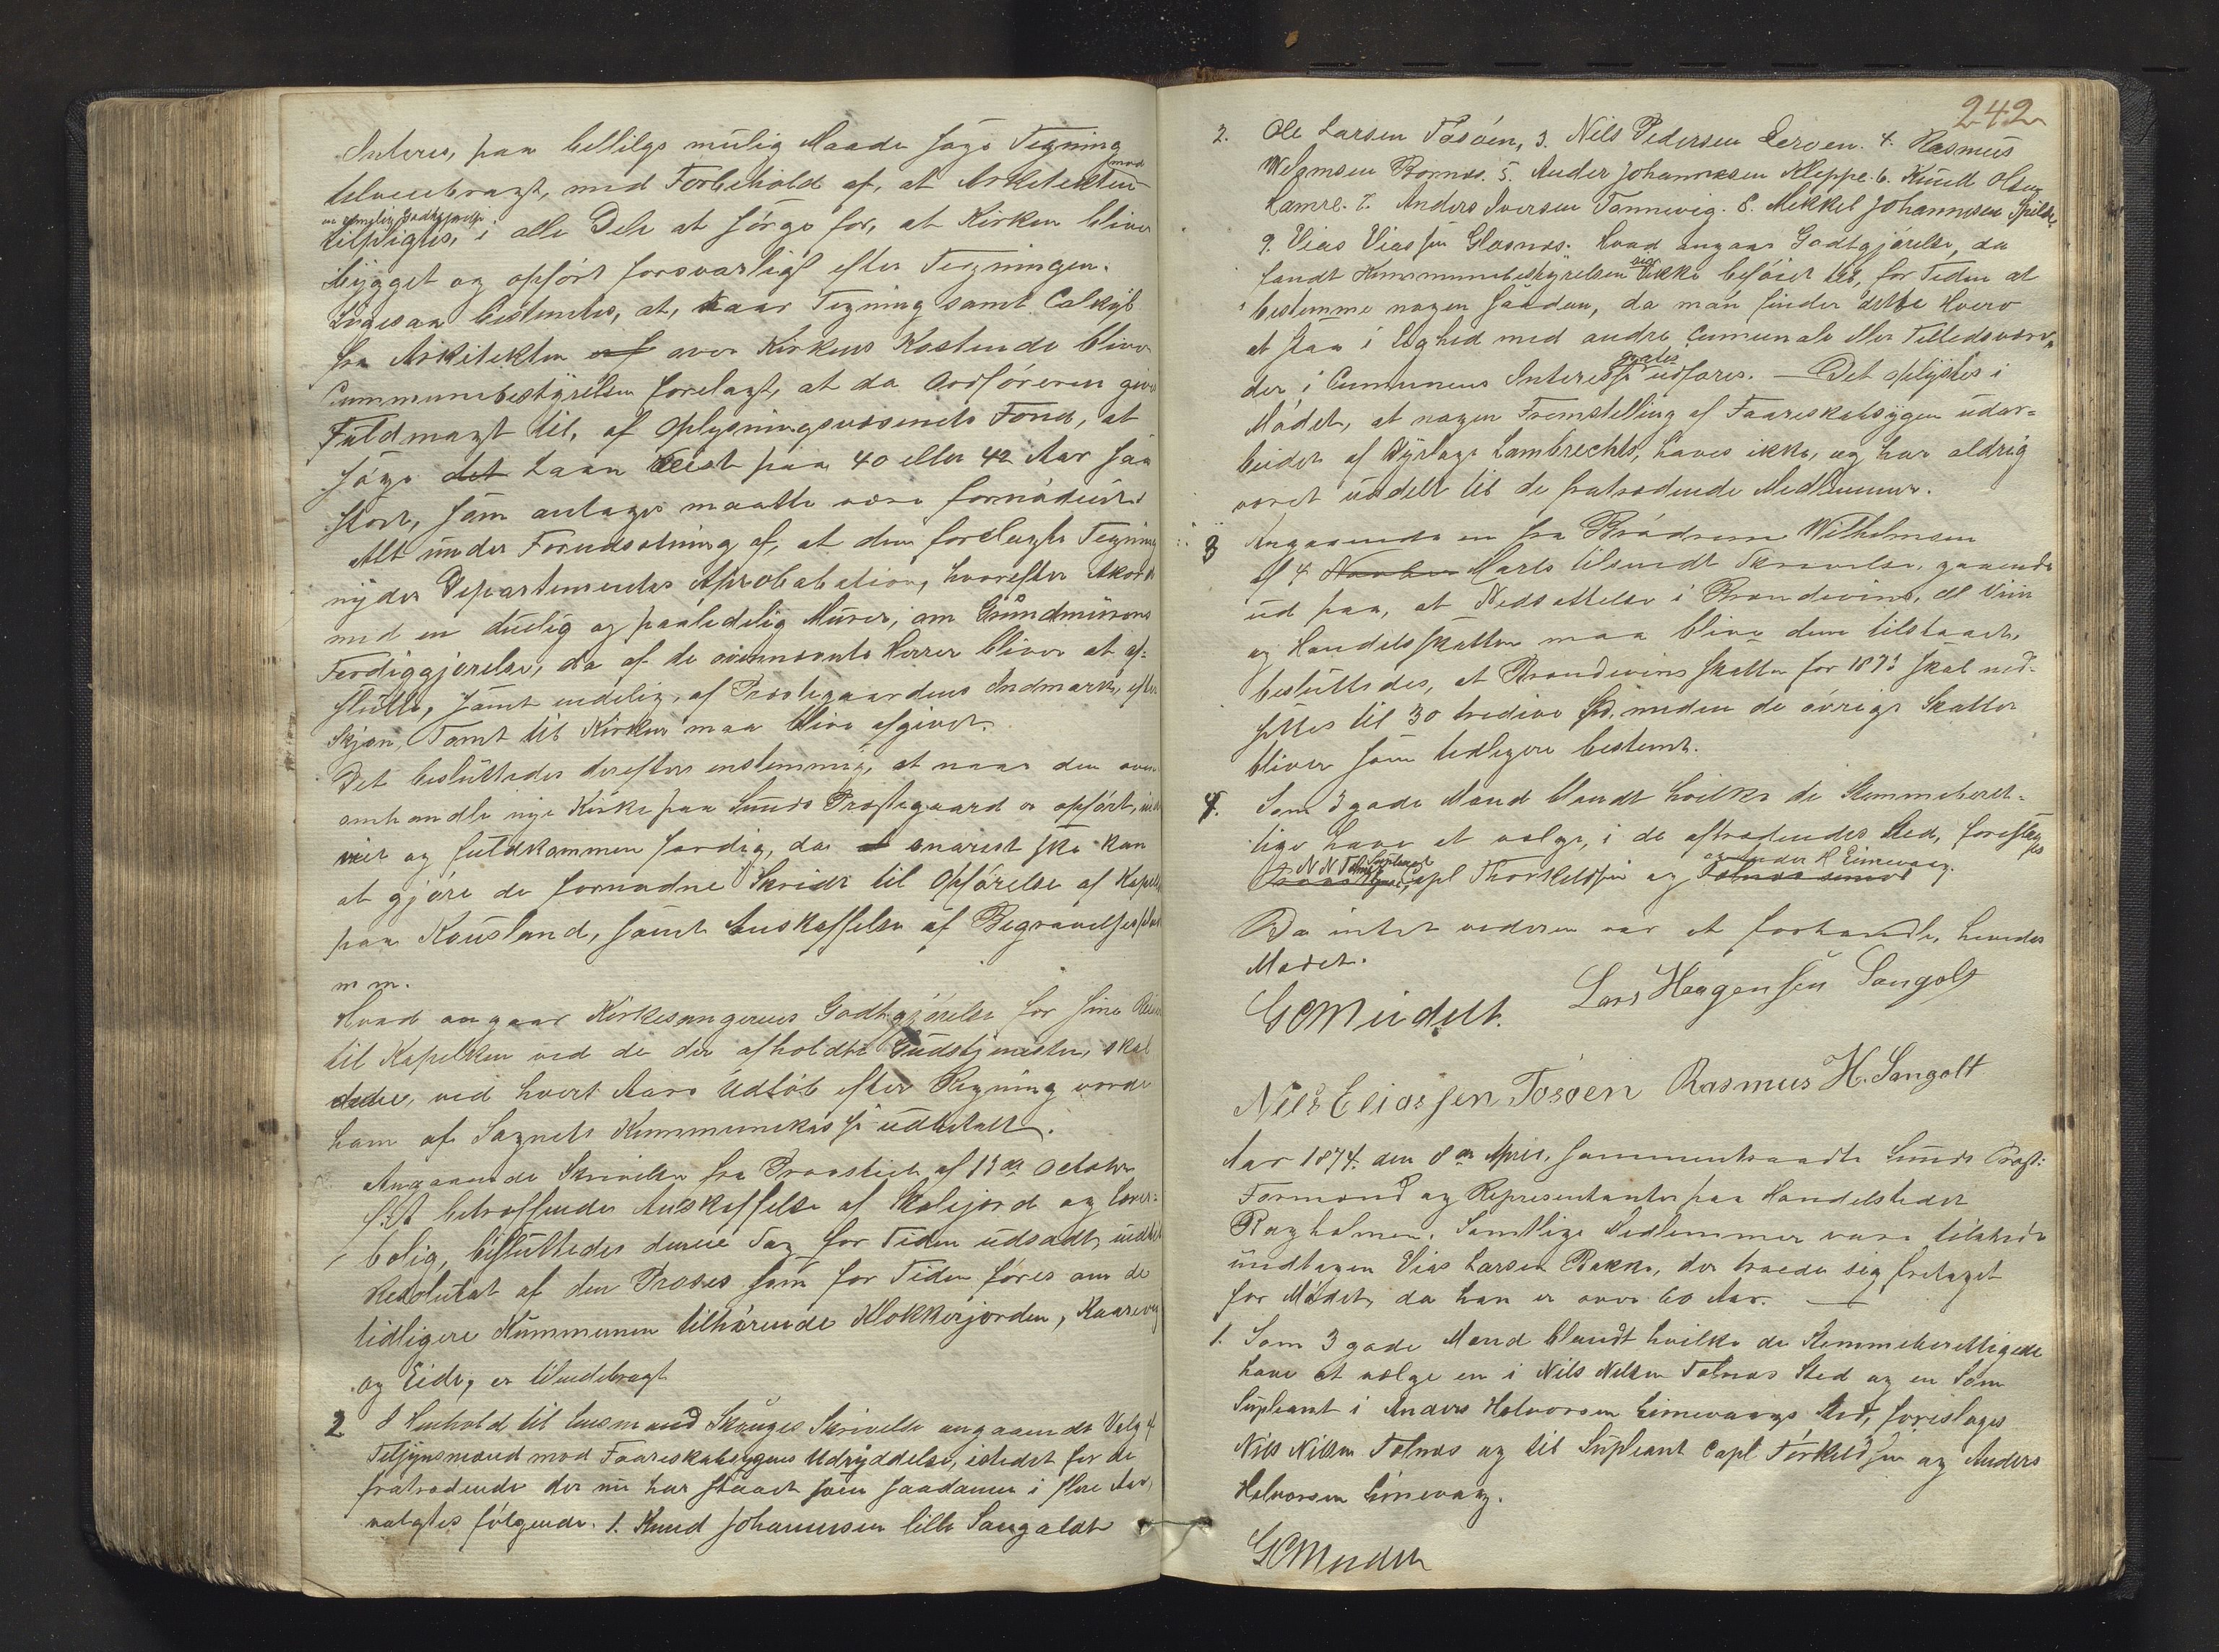 Interes, paa billigs mulig Maade søge Tegning
tilveiebragt, med Forbehold af, at Arkitekten mod
en emelig Godtgjørelse tilpligtes, i alle Dele at sørge for, at Kirken bliver
bygget og opført forsvarligt efter Tegningen.
Ligesaa bestemtes, at, naar Tegning samt Calkyle
fra Arkitekten over Kirkens Kostende bliver
Cummunebestyrelsen forelagt, at da Ordføreren gives
Fuldmagt til, af Oplysningsvæsenets Fond, at
søge det Laan paa 40 eller 42 Aar saa
stort, som antages maatte være fornødent.
Alt under Forudsætning af, at den forelagte Tegning
nyder Departementets Aprobation, hvorefter Akord
med en duelig og paalidelig Murer, om Grundmurens
Ferdiggjørelse, da af de ovennævnte Herrer bliver at af-
slutte, samt endelig, af Præstegaardens Indmark, efter
Skjøn, Tomt til Kirken maa blive afgivet.
Det besluttedes derefter enstemmig, at naar den oven-
omhandle nye Kirke paa Sunds Præstegaard er opført, ind
viet og fuldkommen færdig, da snarest ske kan
at gjøre de fornødne Skridt til Opførelse af Kapel
paa Kousland, samt Anskaffelse af Begravelsesplads
m m.
Hvad angaar Kirkesangerens Godtgjørelse for sine Reiser
til Kapellem ved de der afholdte Gudstjenester, skal
dette, ved hvert Aars Udløb efter Regning vorde
ham af Sognets Kummunekasse udbetalt.
Angaaende Skrivelse fra Provstiet af 13de October
f. A. betræffende Anskaffelse af Skolejord og Lærer-
bolig, besluttedes denne Sag for Tiden udsadt, indtil
Resolutat af den Proses som for Tiden føres om de
tidligere Kummunen tilhørende Klokkerjorden, Kaarevig
og Eide, er tilendebragt
2 I Henhold til Lensmand Skauges Skrivelse angaaende Valg af
Tilsynsmænd mod Faareskabsygens Udryddelse, istedet for de
fratrædende der nu har staaet som saadanne i flere Aar,
valgtes følgende. 1. Knud Johannesen lille Sangoldt
242
2. Ole Larsen Tøsøen, 3. Nils Pedersen Lerøen. 4. Rasmus
Wilomsen Bornæs. 5. Ander Johannesen Kleppe. 6. Knud Olsen
Hamre. 7. Anders Iversen Tønnevig. 8. Mikkel Johannesen Spilde
9. Elias Eliassen Glesnæs. Hvad angaar Godtgjørelse, da
fandt Kummunebestyrelsen sig ikke beføiet til, for Tiden at
bestemme nogen saadan, da man finder dette Hverv
at staa i Lighed med andre Cumunale eller Tillidshverv,
der i Cumunens Interesse gratis udføres. — Det oplystes i
Mødet, at nogen Fremstelling af Faareskabsygen udar-
beidet af Dyrlæge Lambrechts, haves ikke, og har aldrig
været uddelt til de fratrædende Medlemmer.
3 Angaaende en fra Brødrene Wilhelmsen
af 4 Marts tilsendt Skrivelse, gaaende
ud paa, at Nedsættelse i Brændevins, Øl Vin
og Handelsskatten maa blive dem tilstaaet,
besluttedes, at Brændevinsskatten for 1873 skal ned-
sættes til 30 tredive Spd. meden de øvrige Skatter
bliver som tidligere bestemt.
4. Som 3 gode Mænd blandt hvilke de Stemmeberet-
tige have at vælge, i de aftrædendes Sted, foreslages
N N Telnæs Suplement Capl Thorkeldsen og Ander H Eimevaag.
Da intet videre var at forhandle, hævedes
Mødet.
G C Meidell. Lars Haagensen Sangolt
Nils Eliassen Tøsøen Rasmus H. Sangolt
Aar 1874. den 8de April, sammentraadte Sunds Præst:
Formænd og Representanter paa Handelstedet
Bagholmen. Samtlige Medlemmer vare tilstede
undtagen Elias Larsen Bakke, der troede sig fritaget
for Mødet, da han er over 60 Aar. —
1. Som 3 gode Mænd blandt hvilke de Stemmeberettigede
have at vælge en i Nils Nilsen Telnæs Sted og en Som
Supleant i Anders Halvorsen Eimevaags Sted, foreslages
Nils Nilsen Telnæs og til Supleant Capl Torkildsen og Anders
Halvorsen Eimevaag.
G C Meidell